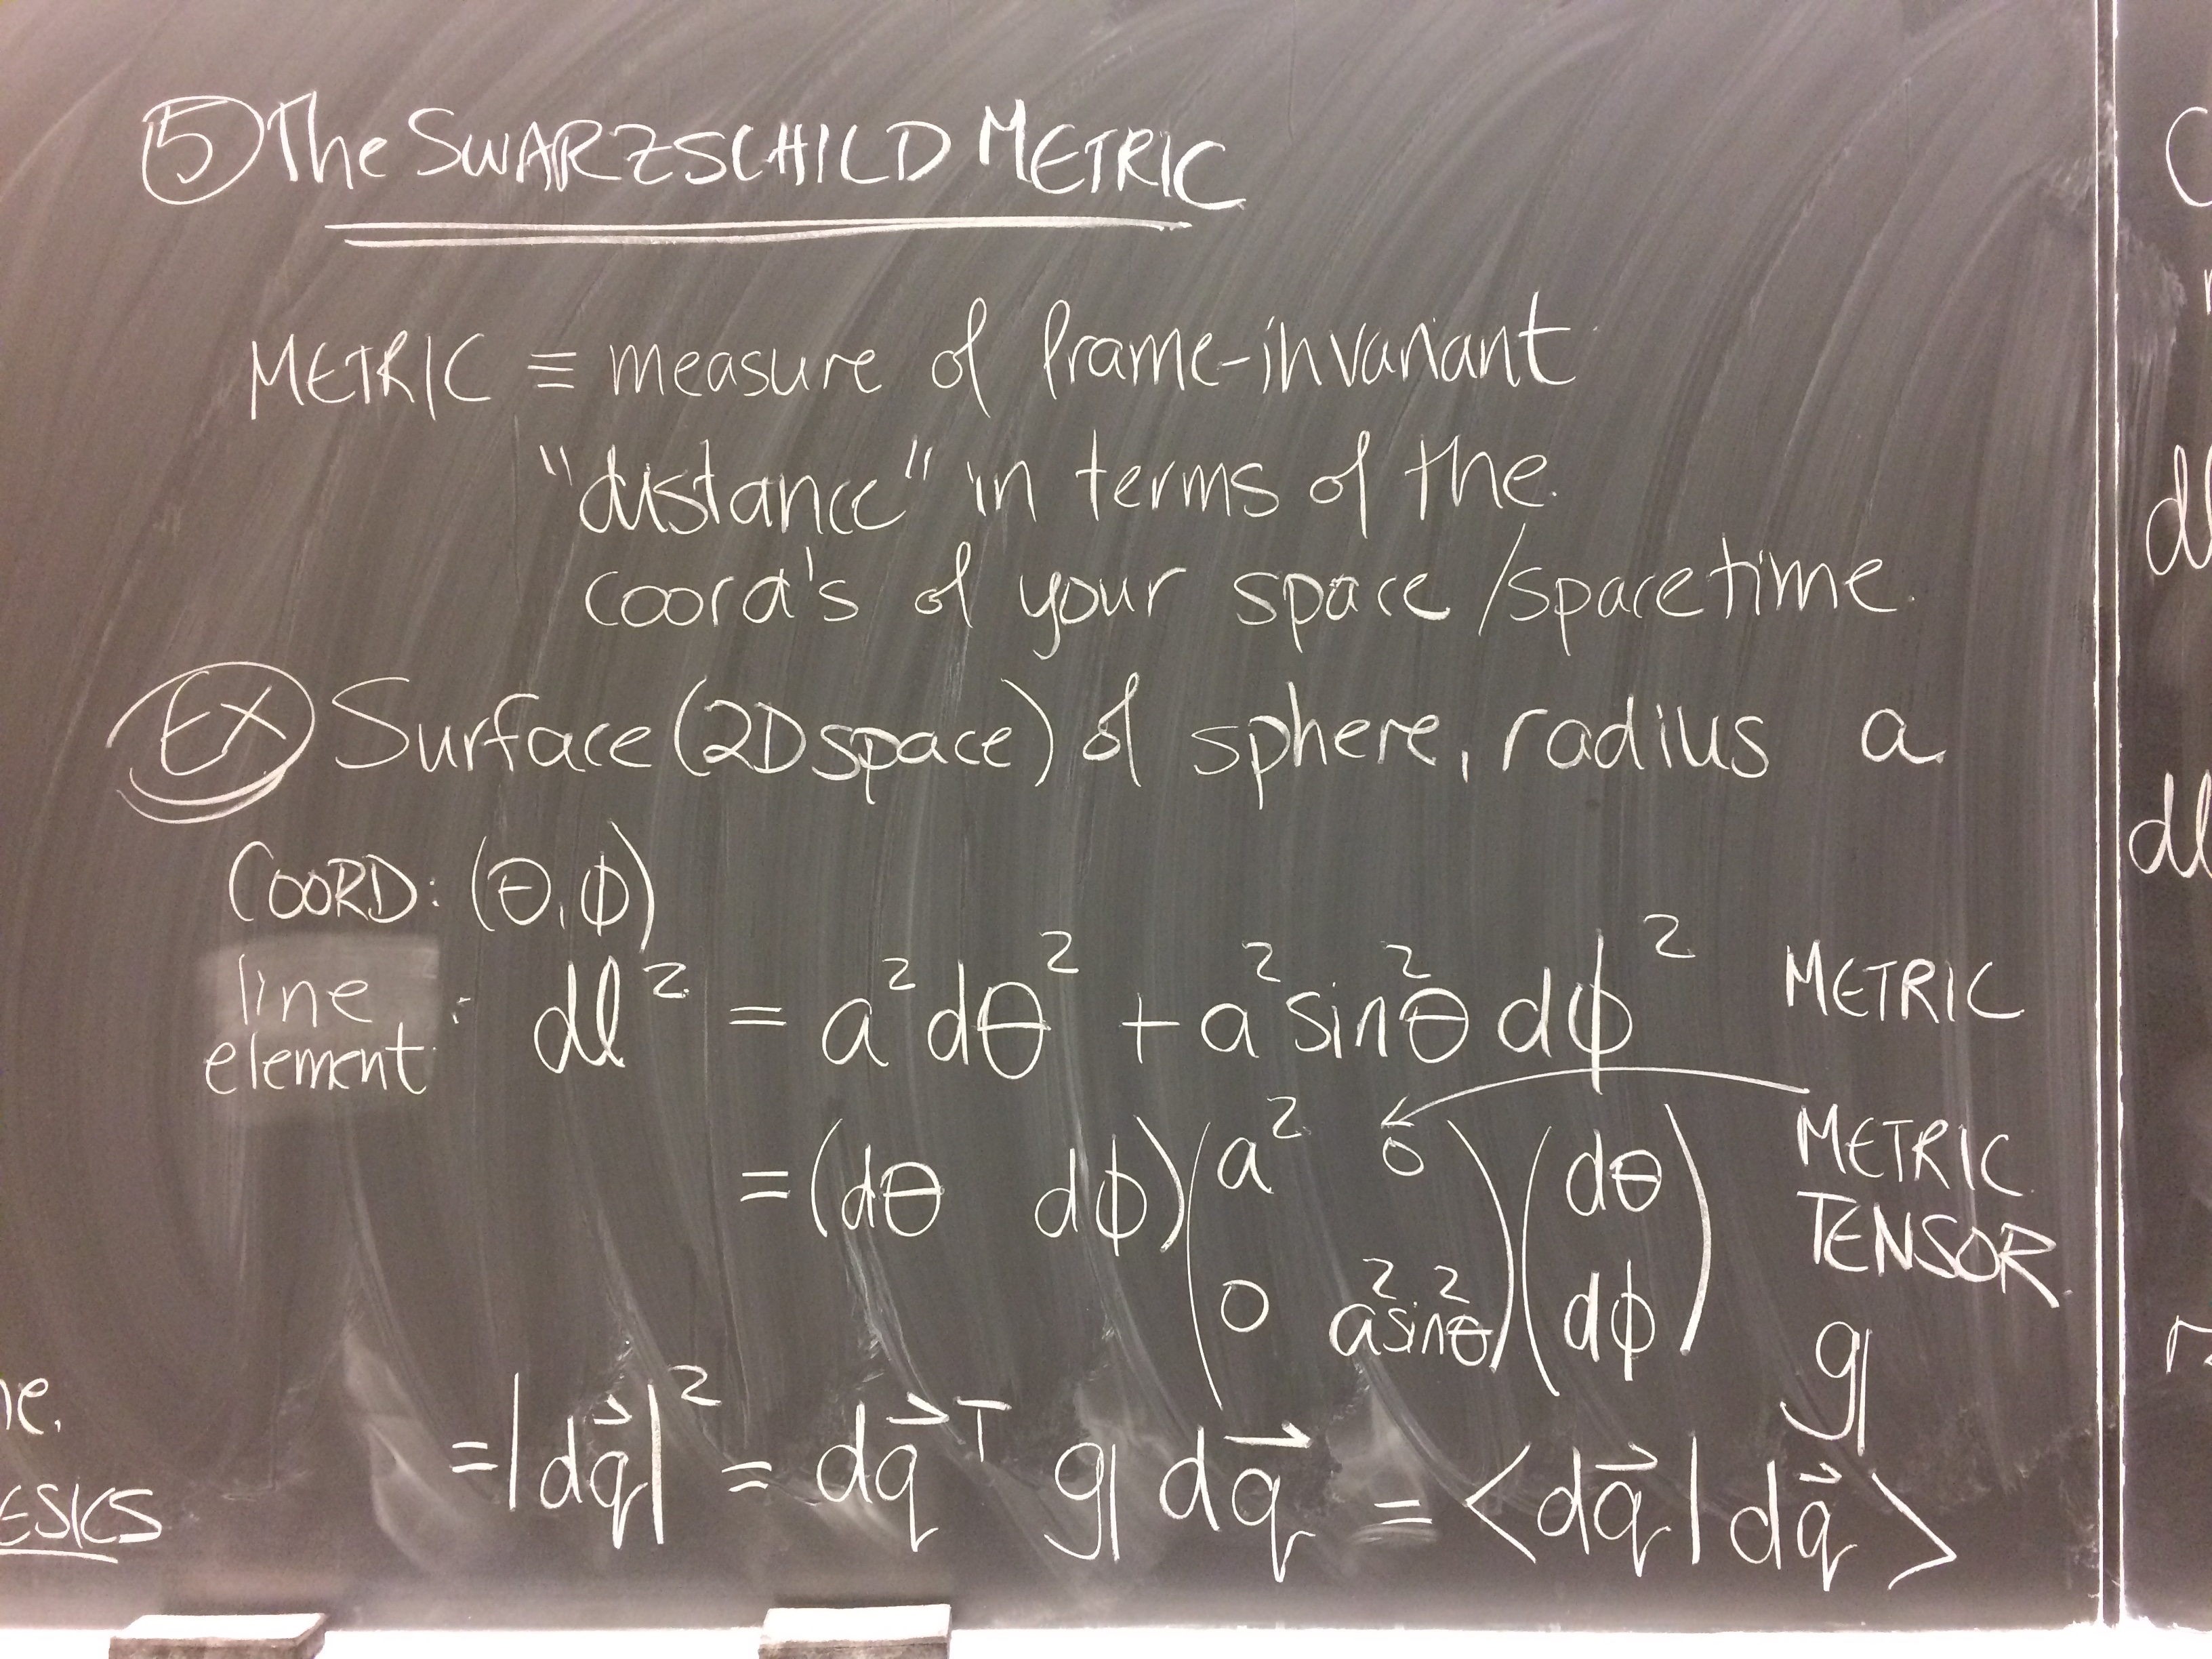 ⑤ The SWARZSCHILD METRIC
METRIC ≡ measure of frame-invariant
"distance" in terms of the
coord's of your space/spacetime.
EX Surface (2D space) of sphere, radius a.
COORD: (θ, ϕ)
line element: dl² = a²dθ² + a² sin²θ dϕ² METRIC
= (dθ dϕ) (a² 0 0 a² sin²θ) (dθ dϕ) METRIC TENSOR g
= |dq⃗|² = dq⃗ᵀ g dq⃗ = <dq⃗|dq⃗>
ESICS
dl
dl